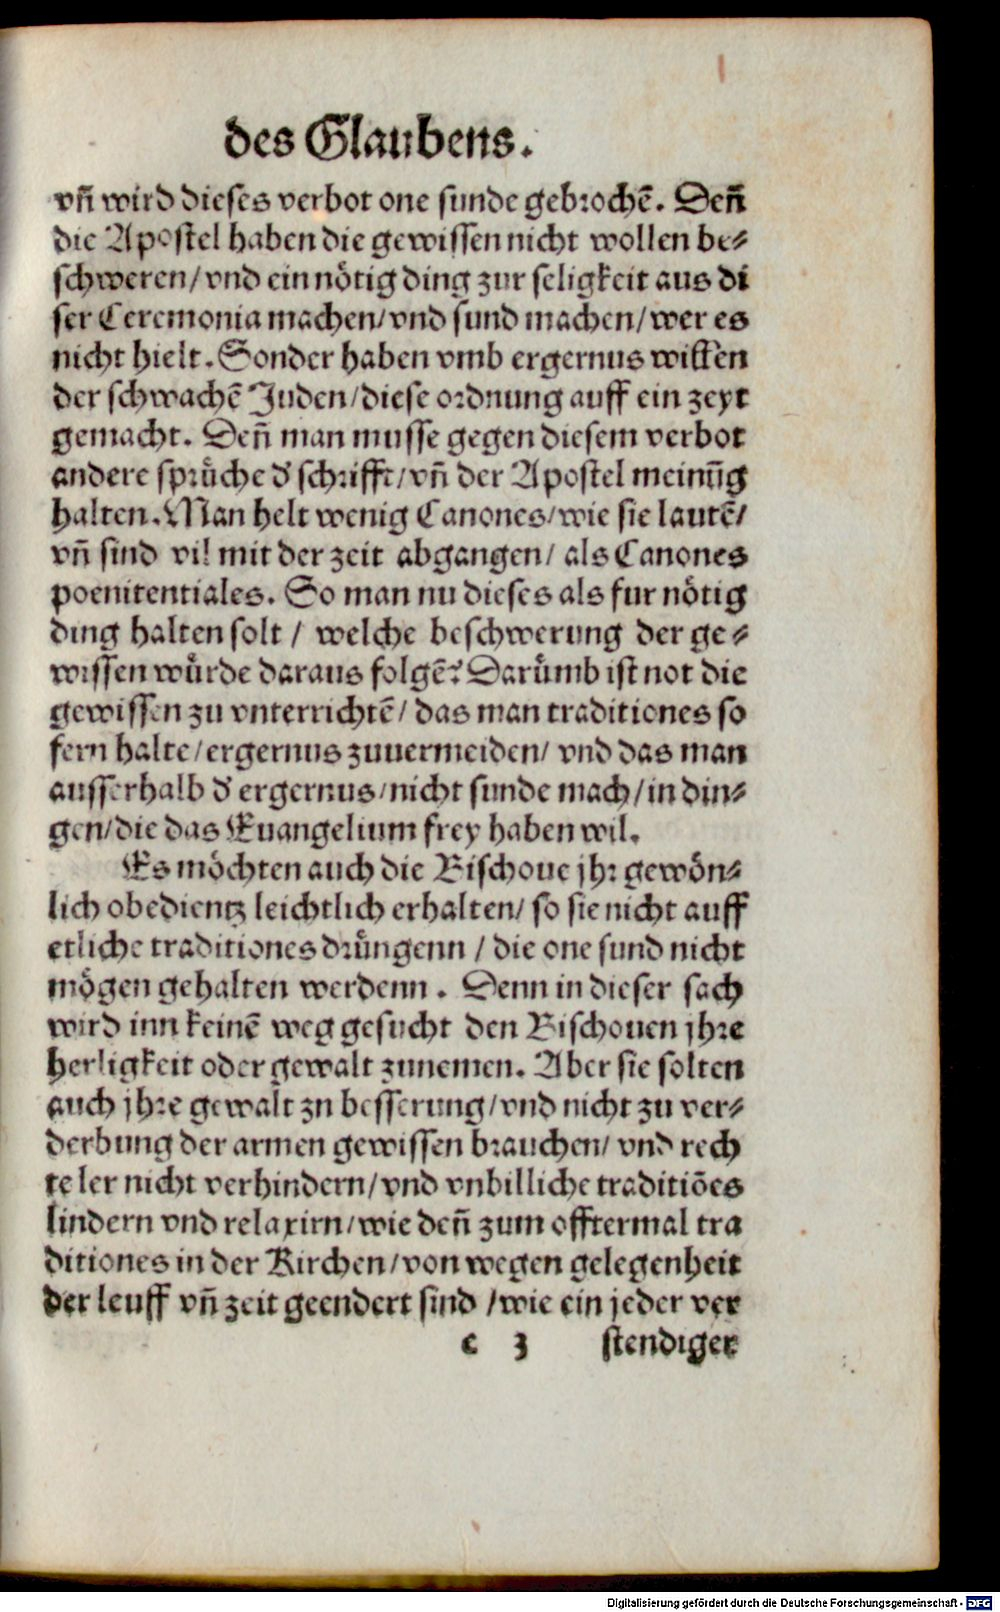 des Glaubens.
vñ wird dieses verbot one sunde gebrochẽ. Deñ
die Apostel haben die gewissen nicht wollen be⸗
schweren/vnd ein nötig ding zur seligkeit aus di
ser Ceremonia machen/vnd sund machen/wer es
nicht hielt. Sonder haben vmb ergernus willen
der schwachẽ Juden/diese ordnung auff ein zeyt
gemacht. Deñ man musse gegen diesem verbot
andere sprůche d' schrifft/vñ der Apostel meinũg
halten. Man helt wenig Canones/wie sie lautẽ/
vñ sind vil mit der zeit abgangen/ als Canones
poenitentiales. So man nu dieses als fur nötig
ding halten solt / welche beschwerung der ge⸗
wissen wůrde daraus folgẽ? Darůmb ist not die
gewissen zu vnterrichtẽ/ das man traditiones so
fern halte/ergernus zuuermeiden/ vnd das man
ausserhalb d' ergernus/nicht sunde mach/in din⸗
gen/die das Euangelium frey haben wil.
Es möchten auch die Bischoue jhr gewön⸗
lich obedientz leichtlich erhalten/ so sie nicht auff
etliche traditiones drůngenn / die one sund nicht
mögen gehalten werdenn . Denn in dieser sach
wird inn keinẽ weg gesucht den Bischouen jhre
herligkeit oder gewalt zunemen. Aber sie solten
auch jhre gewalt zn besserung/vnd nicht zu ver⸗
derbung der armen gewissen brauchen/ vnd rech
te ler nicht verhindern/vnd vnbilliche traditiões
lindern vnd relaxirn/wie deñ zum offtermal tra
ditiones in der Kirchen/von wegen gelegenheit
der leuff vñ zeit geendert sind /wie ein jeder ver
c 3 stendiger
Digitalisierung gefördert durch die Deutsche Forschungsgemeinschaft - DFG